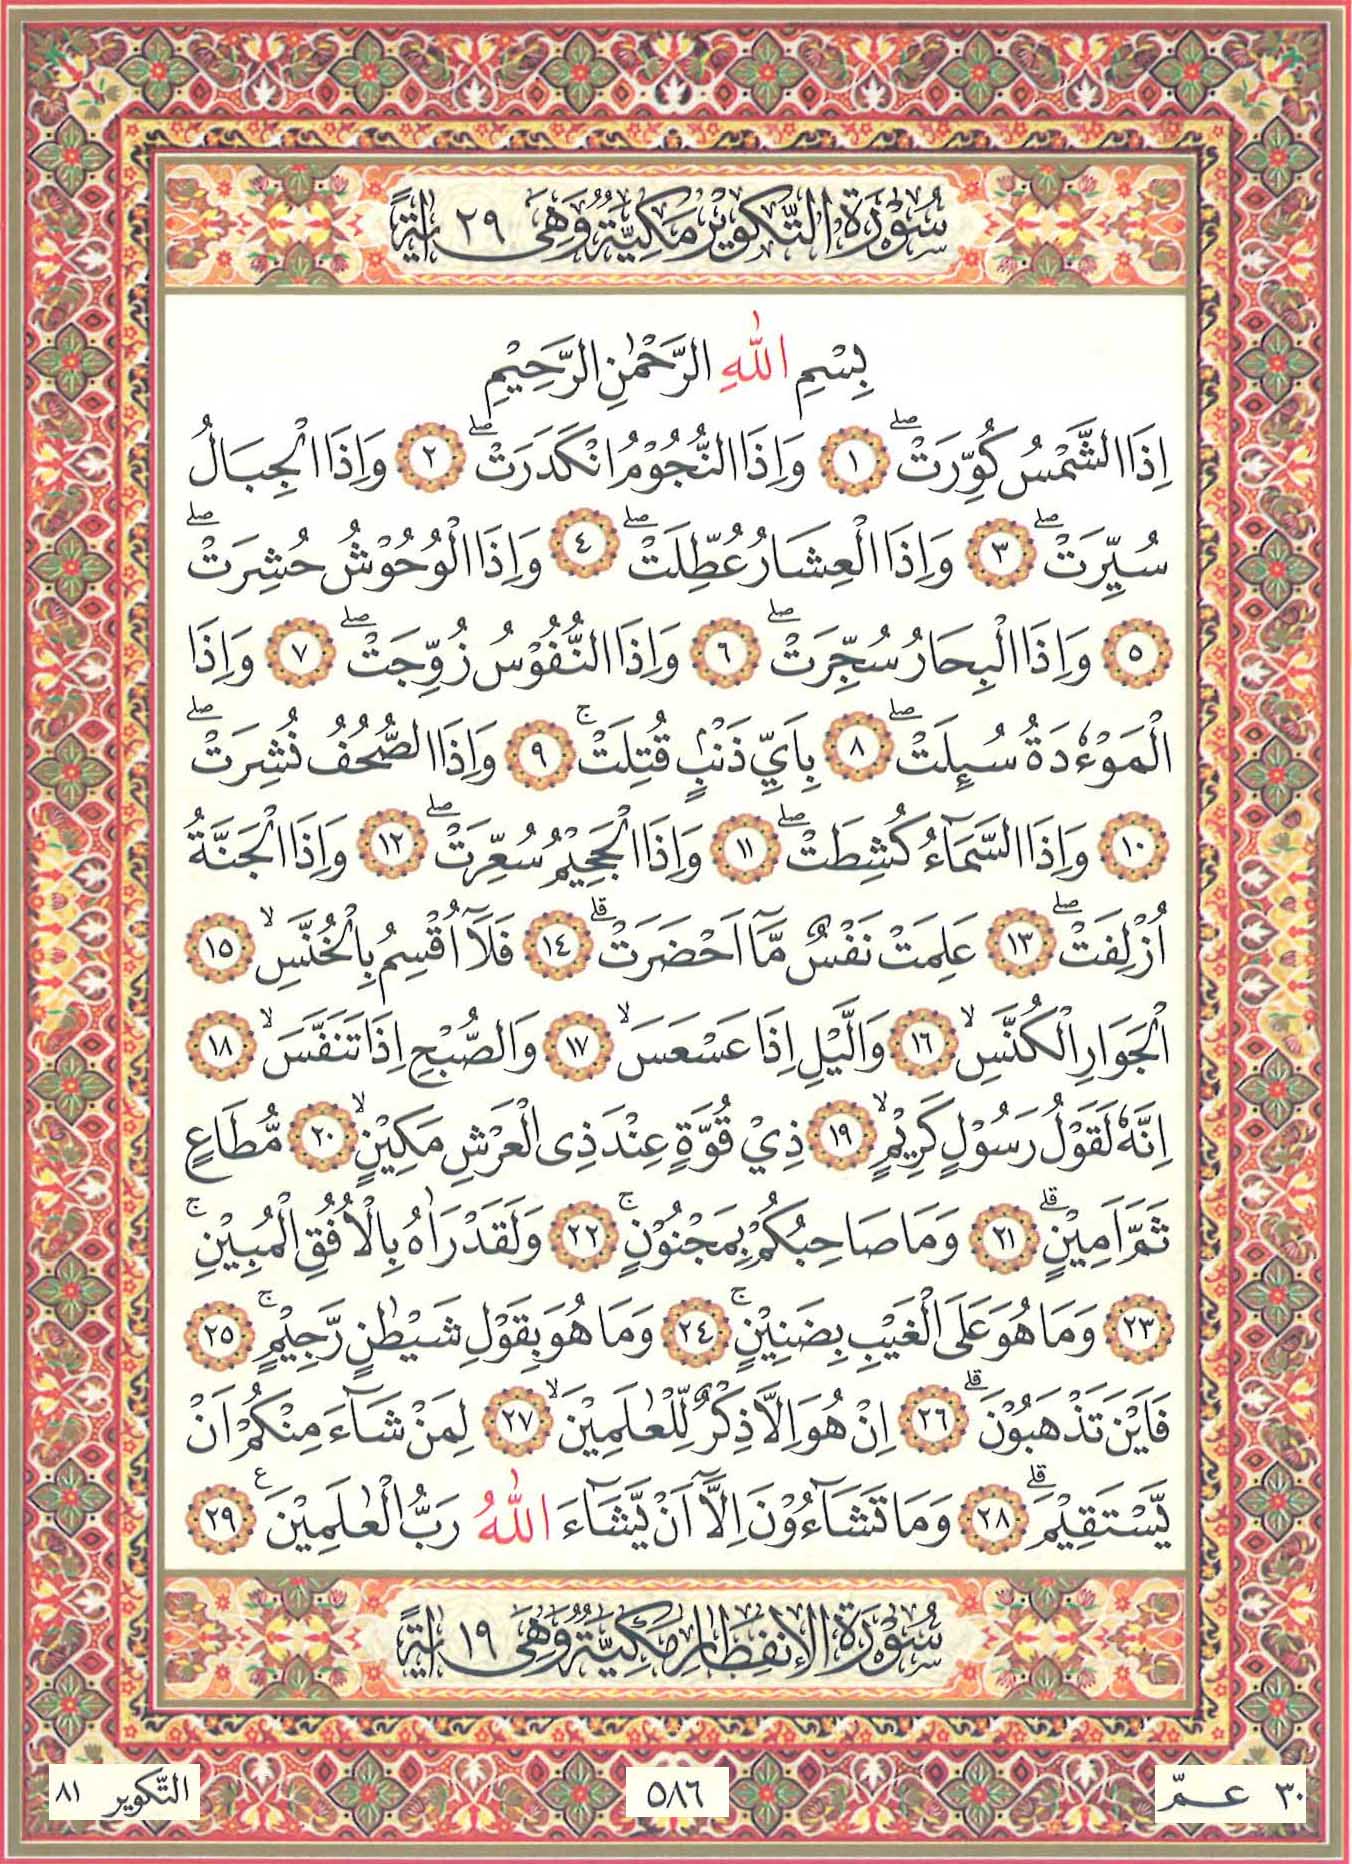 سُوْرَةُ التَّكْوِيْرِ مَكِّيَّةٌ وَّهِىَ ٢٩ اٰيَةً
بِسْمِ اللّٰهِ الرَّحْمٰنِ الرَّحِيْمِ
اِذَا الشَّمْسُ كُوِّرَتْ ۖ ١ وَاِذَا النُّجُوْمُ انْكَدَرَتْ ۖ ٢ وَاِذَا الْجِبَالُ
سُيِّرَتْ ۖ ٣ وَاِذَا الْعِشَارُ عُطِّلَتْ ۖ ٤ وَاِذَا الْوُحُوْشُ حُشِرَتْ ۖ
٥ وَاِذَا الْبِحَارُ سُجِّرَتْ ۖ ٦ وَاِذَا النُّفُوْسُ زُوِّجَتْ ۖ ٧ وَاِذَا
الْمَوْءٗدَةُ سُىِٕلَتْ ۖ ٨ بِاَيِّ ذَنْۢبٍ قُتِلَتْ ۚ ٩ وَاِذَا الصُّحُفُ نُشِرَتْ ۖ
١٠ وَاِذَا السَّمَاۤءُ كُشِطَتْ ۖ ١١ وَاِذَا الْجَحِيْمُ سُعِّرَتْ ۖ ١٢ وَاِذَا الْجَنَّةُ
اُزْلِفَتْ ۖ ١٣ عَلِمَتْ نَفْسٌ مَّآ اَحْضَرَتْ ۗ ١٤ فَلَآ اُقْسِمُ بِالْخُنَّسِ ۙ ١٥
الْجَوَارِ الْكُنَّسِ ۙ ١٦ وَالَّيْلِ اِذَا عَسْعَسَ ۙ ١٧ وَالصُّبْحِ اِذَا تَنَفَّسَ ۙ ١٨
اِنَّهٗ لَقَوْلُ رَسُوْلٍ كَرِيْمٍ ۙ ١٩ ذِيْ قُوَّةٍ عِنْدَ ذِى الْعَرْشِ مَكِيْنٍ ۙ ٢٠ مُّطَاعٍ
ثَمَّ اَمِيْنٍ ۗ ٢١ وَمَا صَاحِبُكُمْ بِمَجْنُوْنٍ ۚ ٢٢ وَلَقَدْ رَاٰهُ بِالْاُفُقِ الْمُبِيْنِ ۚ
٢٣ وَمَا هُوَ عَلَى الْغَيْبِ بِضَنِيْنٍ ۚ ٢٤ وَمَا هُوَ بِقَوْلِ شَيْطٰنٍ رَّجِيْمٍ ۚ ٢٥
فَاَيْنَ تَذْهَبُوْنَ ۗ ٢٦ اِنْ هُوَ اِلَّا ذِكْرٌ لِّلْعٰلَمِيْنَ ۙ ٢٧ لِمَنْ شَاۤءَ مِنْكُمْ اَنْ
يَّسْتَقِيْمَ ۗ ٢٨ وَمَا تَشَاۤءُوْنَ اِلَّآ اَنْ يَّشَاۤءَ اللّٰهُ رَبُّ الْعٰلَمِيْنَ ع ٢٩
سُوْرَةُ الْاِنْفِطَارِ مَكِّيَّةٌ وَّهِىَ ١٩ اٰيَةً
٣٠ عـمّ
٥٨٦
التّكوير ٨١